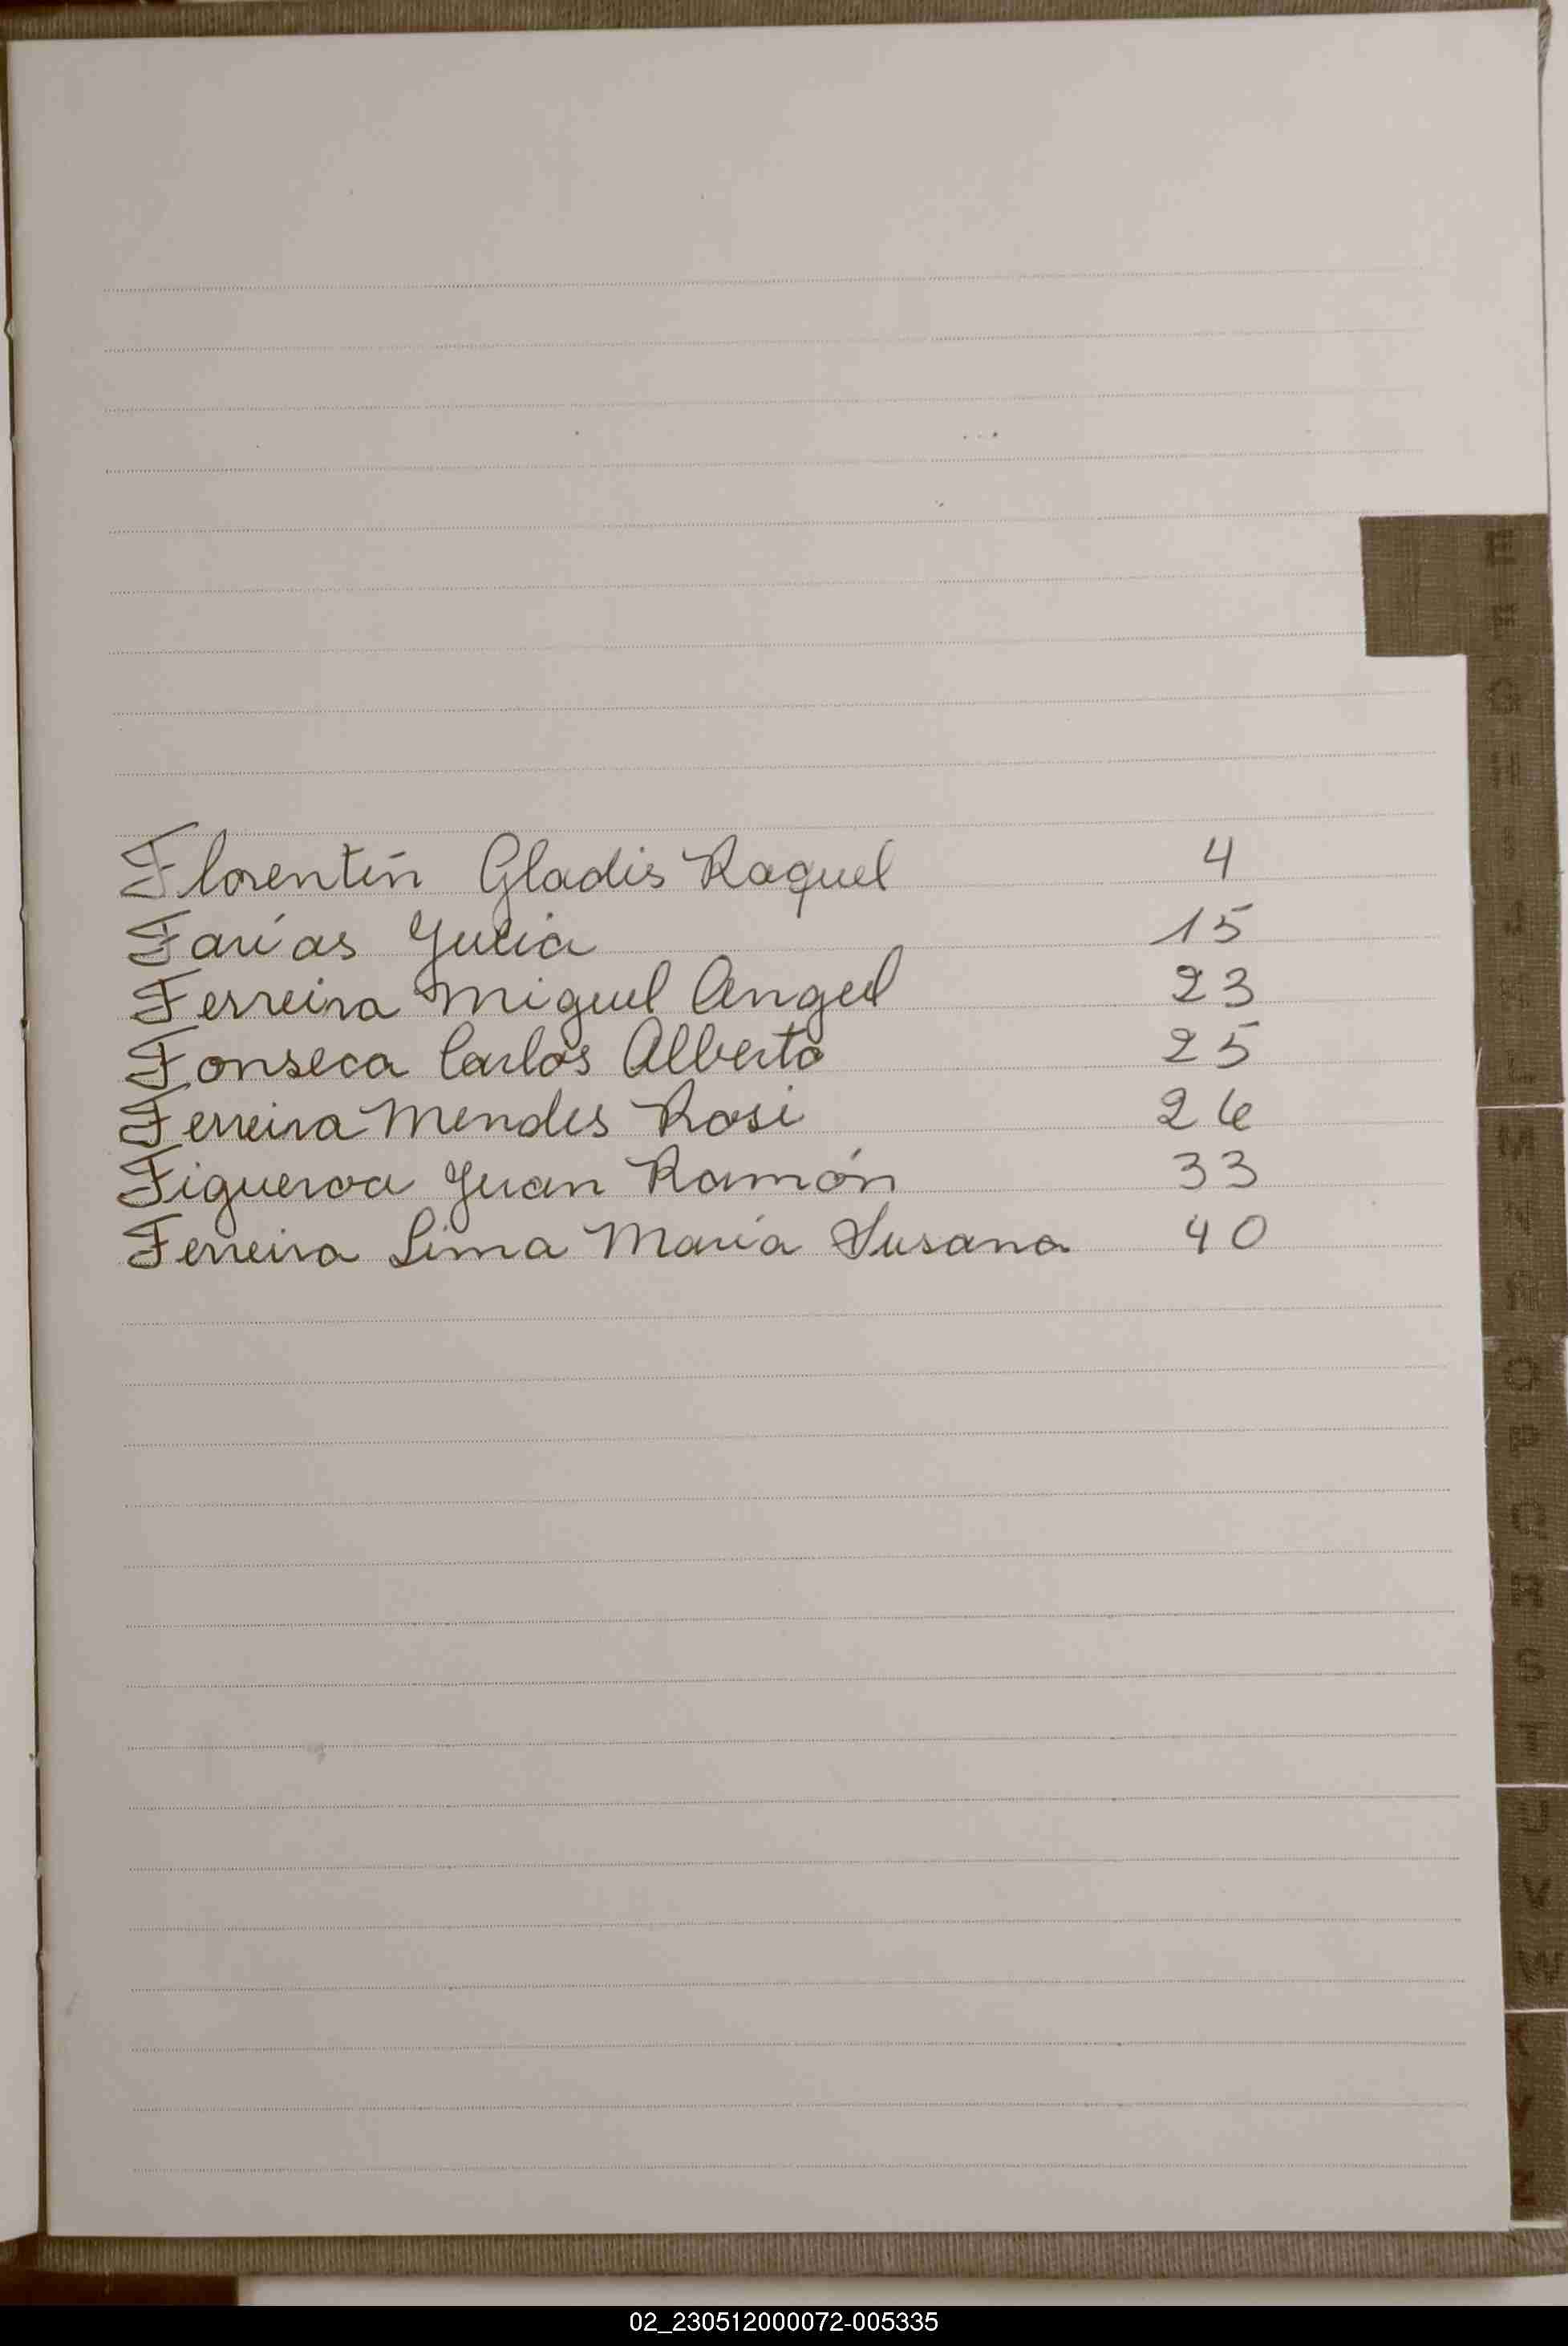 Florentín Gladis Raquel 4
Farías Julia 15
Ferreira Miguel Angel 23
Fonseca Carlos Alberto 25
Ferreira Mendes Rosi 26
Figueroa Juan Ramón 33
Ferreira Lima María Susana 40
E
F
G
H
I
J
K
L
M
N
Ñ
O
P
Q
R
S
T
U
V
W
X
Y
Z
02_230512000072-005335